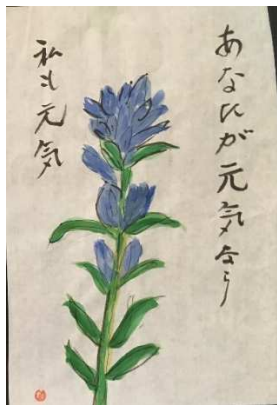 あなたが元気なら
私も元気